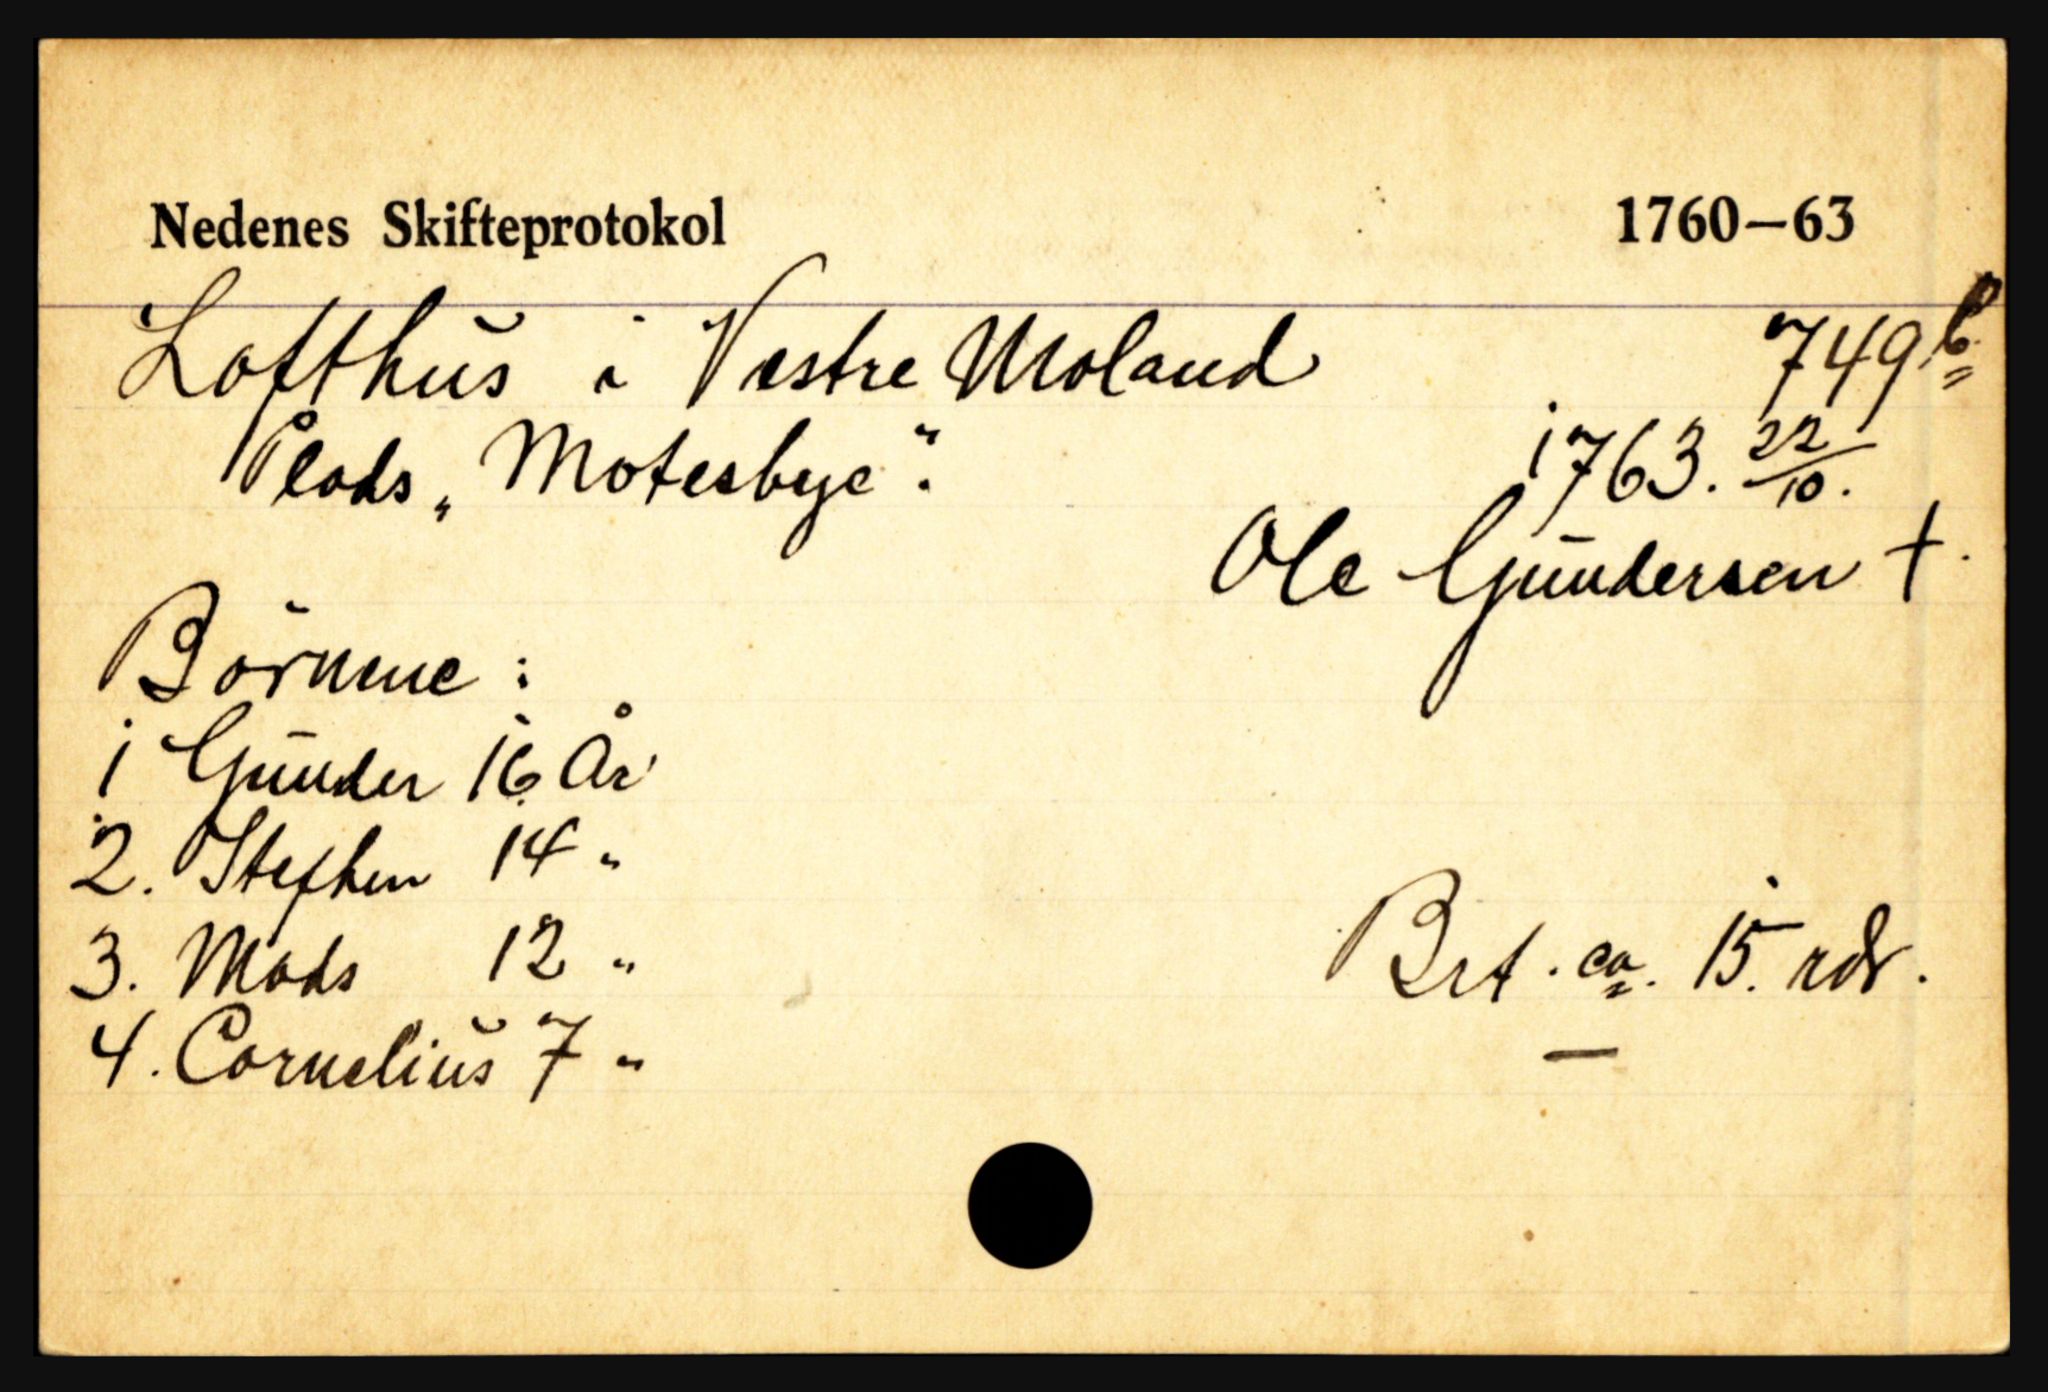 Nedenes Skifteprotokol 1760–63
Lofthus i Vestre Moland 749b.
Plads „Motesbye“. 1763. 22/10.
Ole Gundersen †.
Börnene :
1 Gunder 16 År
2. Stephen 14 "
3. Mads 12 "
Brt. ca. 15. rdr.
4. Cornelius 7 "